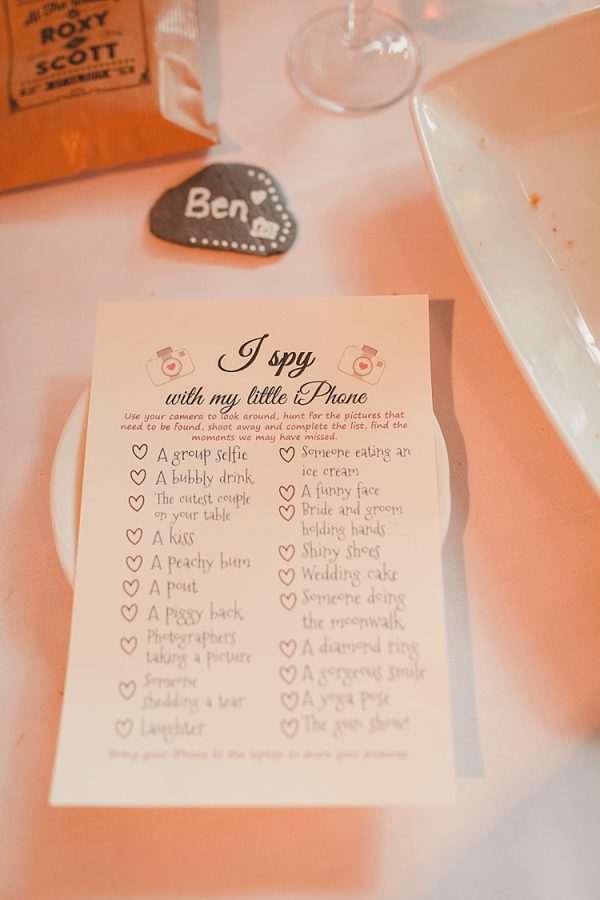 ROXY
SCOTT
Ben
I spy
with my little iPhone
Use your camera to look around, hunt for the pictures that
need to be found, shoot away and complete the list, find the
moments we may have missed.
A group selfie
A bubbly drink
The cutest couple
on your table
A kiss
A peachy bum
A pout
A piggy back
Photographers
taking a picture
Someone
shedding a tear
Laughter
Someone eating an
ice cream
A funny face
Bride and groom
holding hands
Shiny shoes
Wedding cake
Someone doing
the moonwalk
A diamond ring
A gorgeous smile
A yoga pose
The gun show!
Bring your iPhone to the laptop to share your pictures!